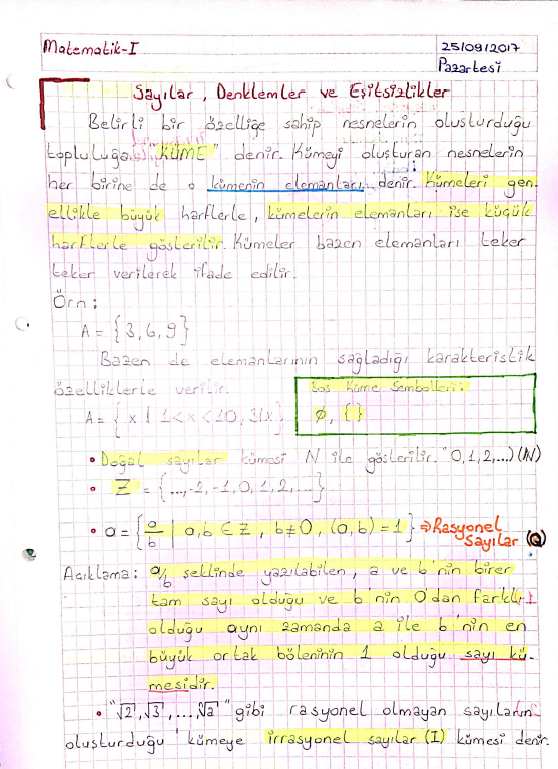 Matematik-I
25/09/2017
Pazartesi
Sayılar, Denklemler ve Eşitsizlikler
Belirli bir özelliğe sahip nesnelerin oluşturduğu
topluluğa "KÜME" denir. Kümeyi oluşturan nesnelerin
her birine de o kümenin elemanları denir. Kümeleri gen-
ellikle büyük harflerle, kümelerin elemanları ise küçük
harflerle gösterilir. Kümeler bazen elemanları teker
teker verilerek ifade edilir.
Örn:
A = {3,6,9}
Bazen de elemanlarının sağladığı karakteristik
özelliklerle verilir.
A = { x | 1<x<10, 3|x}
Boş Küme Sembolleri:
∅, { }
• Doğal sayılar kümesi N ile gösterilir. "0,1,2,...) (N)
• Z = {...,-2,-1,0,1,2,...}
• a = {a/b | a,b ∈ Z, b≠0, (a,b)=1} ⇒ Rasyonel
Sayılar (Q)
Açıklama: a/b şeklinde yazılabilen, a ve b'nin birer
tam sayı olduğu ve b'nin 0'dan farklı
olduğu aynı zamanda a ile b'nin en
büyük ortak böleninin 1 olduğu sayı kü-
mesidir.
• "√2, √3, ... ª√a" gibi rasyonel olmayan sayıların
oluşturduğu kümeye irrasyonel sayılar (I) kümesi denir.